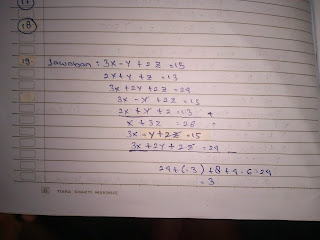 18
19 Jawaban = 3x - y + 2z = 15
2x + y + z = 13
3x + 2y + 2z = 24
3x - y + 2z = 15
2x + y + z = 13 +
x + 3z = 28
3x - y + 2z = 15
3x + 2y + 2z = 24
24 + (-3) + 8 + 4 - 6 = 24
= 3